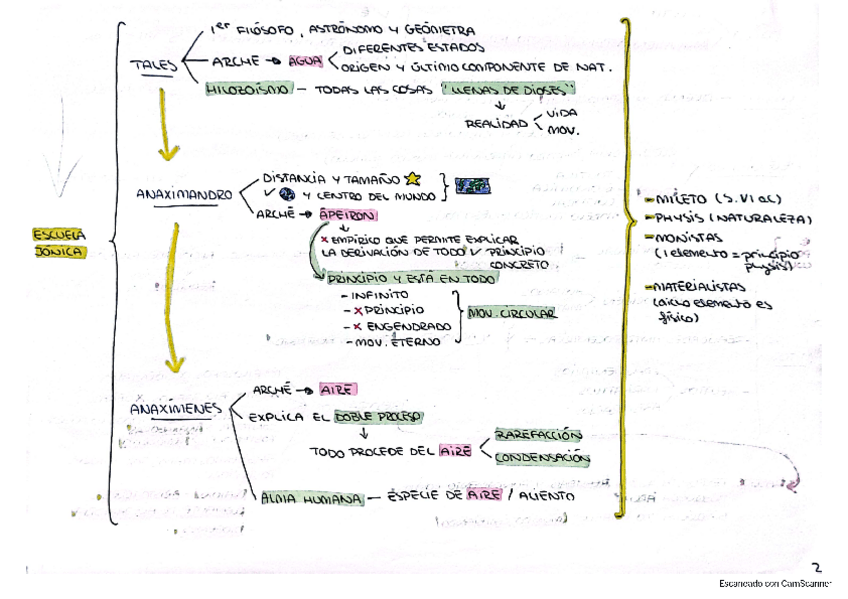 ESCUELA
JÓNICA
TALES
1er FILÓSOFO, ASTRÓNOMO Y GEÓMETRA
ARCHÉ → AGUA
DIFERENTES ESTADOS
ORIGEN Y ÚLTIMO COMPONENTE DE NAT.
HILOZOÍSMO — TODAS LAS COSAS "LLENAS DE DIOSES"
↓
REALIDAD
VIDA
MOV.
ANAXIMANDRO
DISTANCIA Y TAMAÑO
Y CENTRO DEL MUNDO
ARCHÉ → ÁPEIRON
↓
x EMPÍRICO QUE PERMITE EXPLICAR
LA DERIVACIÓN DE TODO ✓ PRINCIPIO
CONCRETO
PRINCIPIO Y ESTÁ EN TODO
- INFINITO
- x PRINCIPIO
- x ENGENDRADO
- MOV. ETERNO
MOV. CIRCULAR
ANAXÍMENES
ARCHÉ → AIRE
EXPLICA EL DOBLE PROCESO
↓
TODO PROCEDE DEL AIRE
RAREFACCIÓN
CONDENSACIÓN
ALMA HUMANA — ESPECIE DE AIRE / ALIENTO
- MILETO (S. VI aC)
- PHYSIS (NATURALEZA)
- MONISTAS
(1 elemento = principio
physis)
- MATERIALISTAS
(dicho elemento es
físico)
2
Escaneado con CamScanner